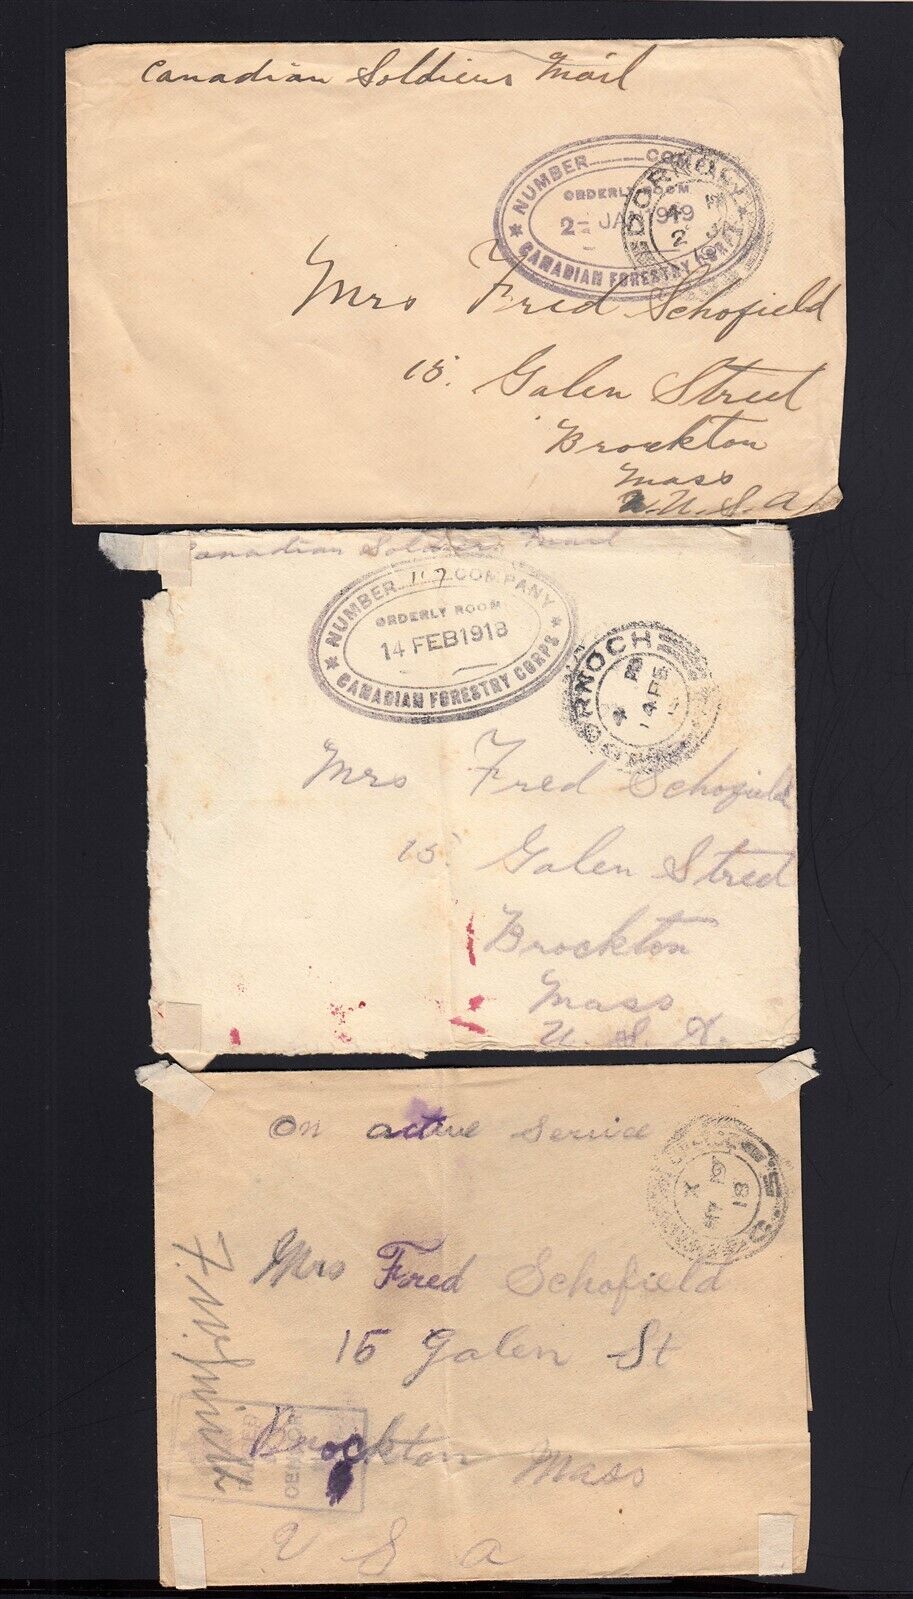 Canadian Soldiers Mail
NUMBER COMPANY
ORDERLY ROOM
2- JA 1919
CANADIAN FORESTRY CORPS
DORNOCH
Mrs Fred Schofield
15. Galen Street
Brockton
Mass
U.S.A
Canadian Soldiers Mail
NUMBER 117 COMPANY
ORDERLY ROOM
14 FEB 1918
CANADIAN FORESTRY CORPS
ORNOCH
Mrs Fred Schofield
15 Galen Street
Brockton
Mass
U.S.A.
On active service
Mrs Fred Schofield
15 Galen St
Brockton Mass
CENSOR
U S A